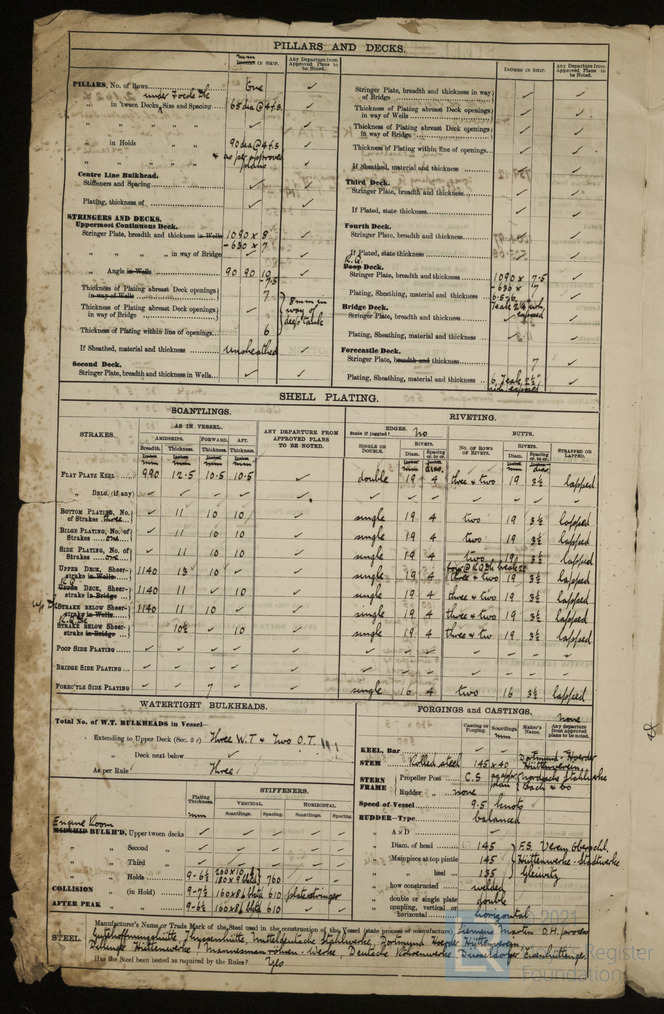 PILLARS AND DECKS.
mm
Inches IN SHIP.
Any Departure from Approved Plans to be Noted.
PILLARS, No. of Rows One
under Foc'sle Dk
" in 'tween Decks, Size and Spacing 65 dia @ 4 f.s.
" " " "
" in Holds " 90 dia @ 4 f.s.
" " " " & as per approved plans
Centre Line Bulkhead.
Stiffeners and Spacing
Plating, thickness of
STRINGERS AND DECKS.
Uppermost Continuous Deck.
Stringer Plate, breadth and thickness in Wells 1090 x 8
- 630 x 7
" " " " in way of Bridge
" Angle in Wells 90 90 10
- 7.5
Thickness of Plating abreast Deck openings in way of Wells 7
Thickness of Plating abreast Deck openings in way of Bridge
8mm in way of deep tank
Thickness of Plating within line of openings 6
If Sheathed, material and thickness unsheathed
Second Deck.
Stringer Plate, breadth and thickness in Wells
INCHES IN SHIP.
Any Departure from Approved Plans to be Noted.
Stringer Plate, breadth and thickness in way of Bridge
Thickness of Plating abreast Deck openings in way of Wells
Thickness of Plating abreast Deck openings in way of Bridge
Thickness of Plating within line of openings
If Sheathed, material and thickness
Third Deck.
Stringer Plate, breadth and thickness
If Plated, state thickness
Fourth Deck.
Stringer Plate, breadth and thickness
If Plated, state thickness
R.Q.
Poop Deck.
Stringer Plate, breadth and thickness 1090 x 7.5
- 630 x 7
Plating, Sheathing, material and thickness
Bridge Deck.
Stringer Plate, breadth and thickness
Plating, Sheathing, material and thickness
Forecastle Deck.
Stringer Plate, breadth and thickness 7
Plating, Sheathing, material and thickness 6, Teak 2½"
SHELL PLATING.
SCANTLINGS.
RIVETING.
STRAKES.
AS IN VESSEL.
AMIDSHIPS. FORWARD. AFT.
Breadth. Thickness. Thickness. Thickness.
mm mm mm mm
ANY DEPARTURE FROM APPROVED PLANS TO BE NOTED.
EDGES.
State if joggled? No
SINGLE OR DOUBLE.
RIVETS.
Diam. Spacing cr. to cr.
mm dias.
BUTTS.
NO. OF ROWS OF RIVETS.
RIVETS.
Diam. Spacing cr. to cr.
mm dia
STRAPPED OR LAPPED.
FLAT PLATE KEEL 990 12.5 10.5 10.5 double 19 4 three & two 19 3½ lapped
" DBLG. (if any)
BOTTOM PLATING, No. of Strakes three 11 10 10 single 19 4 two 19 3½ lapped
BILGE PLATING, No. of Strakes one 11 10 10 single 19 4 two 19 3½ lapped
SIDE PLATING, No. of Strakes one 11 10 10 single 19 4 two 19 3½ lapped
UPPER DECK, Sheerstrake in Wells 1140 13 10 single 19 4 three & two 19 3½ lapped
R.Q.
UPPER DECK, Sheerstrake in Bridge 1140 11 10 single 19 4 three & two 19 3½ lapped
STRAKE BELOW Sheerstrake in Wells 1140 11 10 single 19 4 three & two 19 3½ lapped
R.Q. Dk
STRAKE BELOW Sheerstrake in Bridge 10½ 10 single 19 4 three & two 19 3½ lapped
POOP SIDE PLATING
BRIDGE SIDE PLATING
FORE'CTLE SIDE PLATING 7 single 16 4 two 16 3½ lapped
WATERTIGHT BULKHEADS.
Total No. of W.T. BULKHEADS in Vessel—
" Extending to Upper Deck (Sec. 3 c) Three W.T. & Two O.T.
" Deck next below
As per Rule Three
Plating Thickness.
STIFFENERS.
VERTICAL. HORIZONTAL.
Scantlings. Spacing. Scantlings. Spacing.
mm
Engine Room
MIDSHIP BULKH'D, Upper tween decks
" " Second "
" " Third "
" " Holds 9 - 6½ 760
COLLISION " (in Hold) 9 - 7½ 610 plate stringer
AFTER PEAK " " 9 - 6½ 610
FORGINGS and CASTINGS.
Casting or Forging. Scantlings. Maker's Name. Any departure from approved plans to be noted.
mm
none
KEEL, Bar
STEM Rolled steel 145 x 40 Dortmund-Hoerder Hüttenverein
STERN FRAME
Propeller Post C.S.
Rudder " none
Speed of Vessel 9.5 knots
RUDDER—Type balanced
" A x D
" Diam. of head 145
" Mainpiece at top pintle 145
" " heel 135
" how constructed welded
" double or single plate double
" coupling, vertical or horizontal horizontal
STEEL.
Manufacturer's Name or Trade Mark of the Steel used in the construction of the Vessel (state process of manufacture) Siemens Martin O.H. process
Gutehoffnungshütte, Mitteldeutsche Stahlwerke, Dortmund Hoerder Hüttenverein
Hüttenwerke, Mannesmann röhren-Werke, Deutsche Röhrenwerke, Düsseldorfer Eisenhütten
Has the Steel been tested as required by the Rules? Yes
© 2021
Lloyd's Register
Foundation